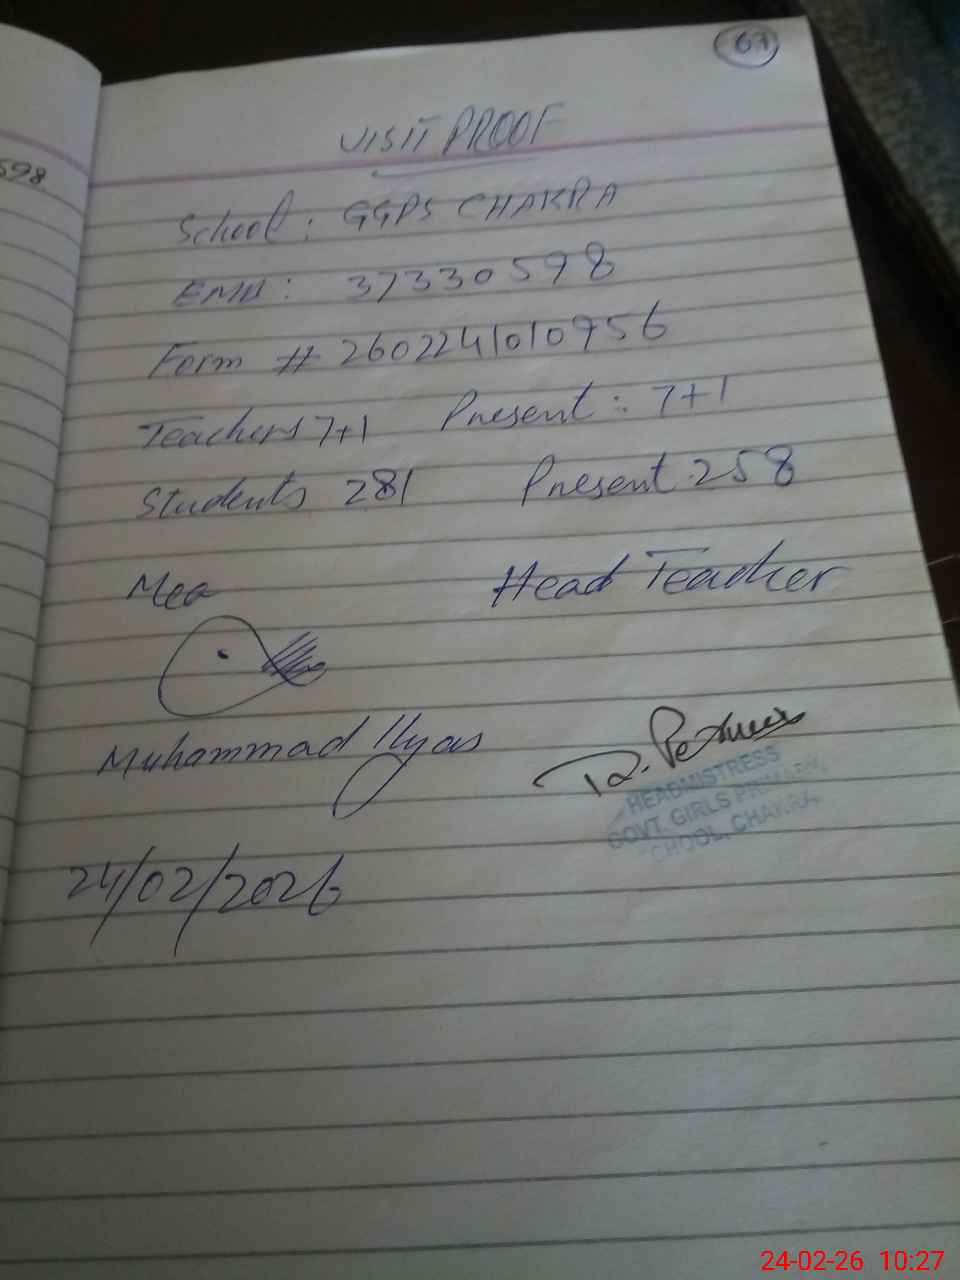 67
598
VISIT PROOF
School: GGPS CHAKRA
EMIS: 37330598
Form # 2602241010956
Teachers 7+1 Present: 7+1
Students 281 Present: 258
Mea Head Teacher
Muhammad Ilyas
HEADMISTRESS
GOVT. GIRLS PRIMARY
CHOOL, CHAKRA
24/02/2026
24-02-26 10:27